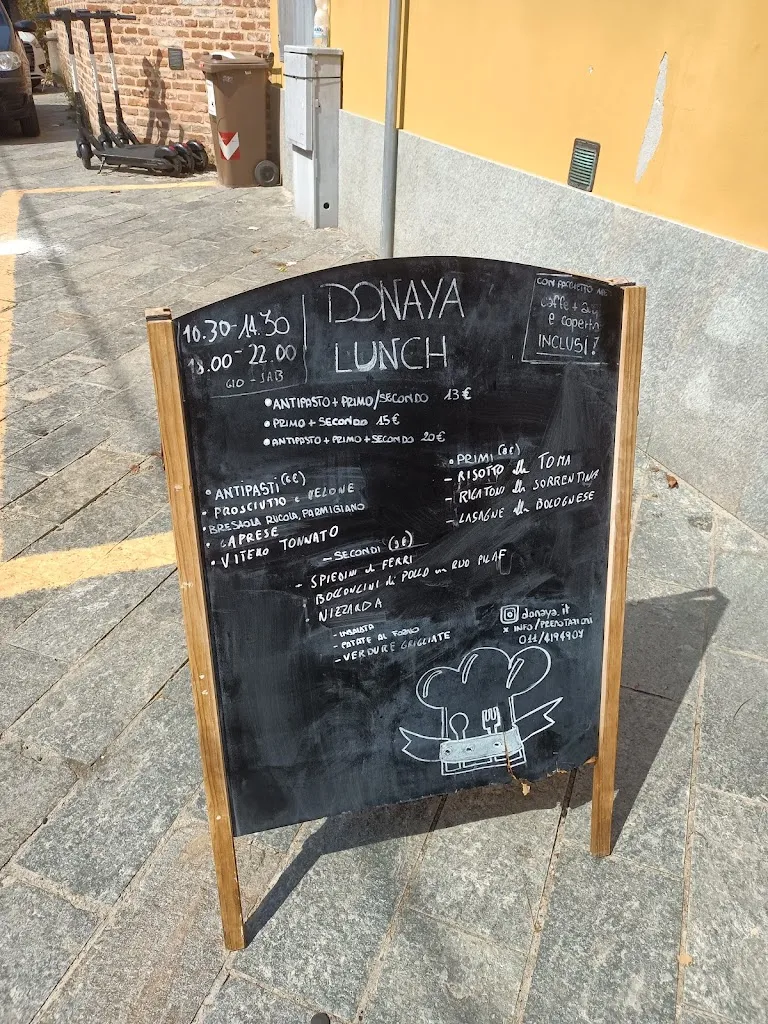 10.30-14.30
18.00-22.00
GIO-SAB
DONAYA
LUNCH
CON PACCHETTO
caffè +
e coperto
INCLUSI!
• ANTIPASTO + PRIMO/SECONDO 13€
• PRIMO + SECONDO 15€
• ANTIPASTO + PRIMO + SECONDO 20€
• ANTIPASTI (6€)
- PROSCIUTTO e MELONE
• BRESAOLA RUCOLA, PARMIGIANO
• CAPRESE
• VITELLO TONNATO
• PRIMI (8€)
- RISOTTO alla TOMA
- RIGATONI alla SORRENTINA
- LASAGNE alla BOLOGNESE
- SECONDI (9€)
- SPIEDINI di FERRI
BOCCONCINI di POLLO con RISO PILAF
NIZZARDA
- INSALATA
- PATATE AL FORNO
- VERDURE GRIGLIATE
donaya.it
* INFO/PRENOTAZIONI
011/4194907